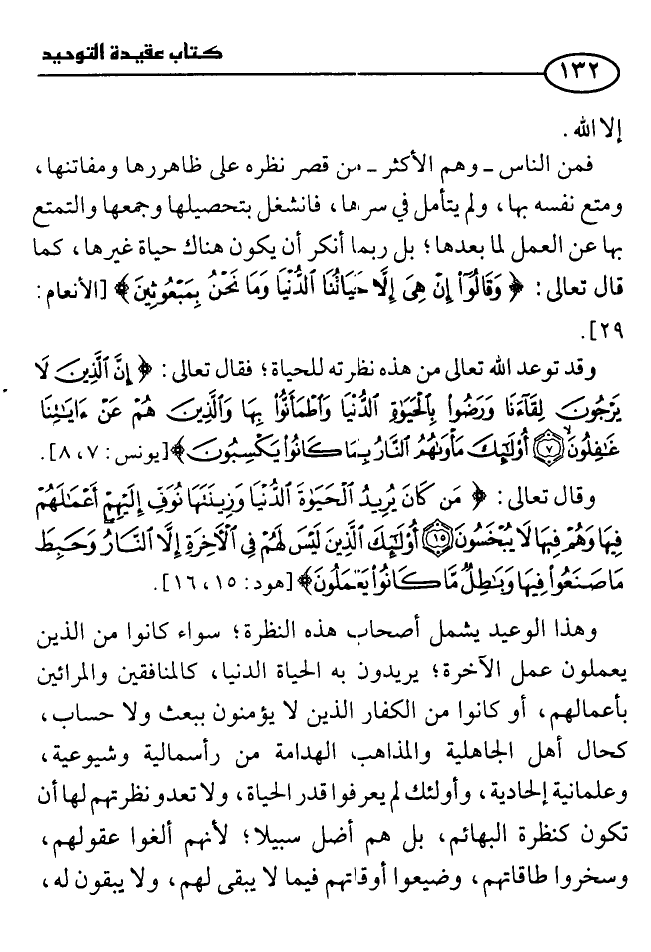 كتاب عقيدة التوحيد
١٣٢
إلا الله .
فمن الناس ـ وهم الأكثر ـ من قصر نظره على ظاهررها ومفاتنها،
ومتع نفسه بها، ولم يتأمل في سرها، فانشغل بتحصيلها وجمعها والتمتع
بها عن العمل لما بعدها؛ بل ربما أنكر أن يكون هناك حياة غيرها، كما
قال تعالى: ﴿ وَقَالُوٓاْ إِنْ هِىَ إِلَّا حَيَاتُنَا ٱلدُّنْيَا وَمَا نَحْنُ بِمَبْعُوثِينَ ﴾ [الأنعام:
٢٩].
وقد توعد الله تعالى من هذه نظرته للحياة؛ فقال تعالى: ﴿ إِنَّ ٱلَّذِينَ لَا
يَرْجُونَ لِقَآءَنَا وَرَضُواْ بِٱلْحَيَوٰةِ ٱلدُّنْيَا وَٱطْمَأَنُّواْ بِهَا وَٱلَّذِينَ هُمْ عَنْ ءَايَٰتِنَا
غَٰفِلُونَ ۝٧ أُوْلَٰٓئِكَ مَأْوَىٰهُمُ ٱلنَّارُ بِمَا كَانُواْ يَكْسِبُونَ ﴾ [يونس: ٧، ٨].
وقال تعالى: ﴿ مَن كَانَ يُرِيدُ ٱلْحَيَوٰةَ ٱلدُّنْيَا وَزِينَتَهَا نُوَفِّ إِلَيْهِمْ أَعْمَٰلَهُمْ
فِيهَا وَهُمْ فِيهَا لَا يُبْخَسُونَ ۝١٥ أُوْلَٰٓئِكَ ٱلَّذِينَ لَيْسَ لَهُمْ فِى ٱلْأَخِرَةِ إِلَّا ٱلنَّارُ وَحَبِطَ
مَا صَنَعُواْ فِيهَا وَبَٰطِلٌ مَّا كَانُواْ يَعْمَلُونَ ﴾ [هود: ١٥، ١٦].
وهذا الوعيد يشمل أصحاب هذه النظرة؛ سواء كانوا من الذين
يعملون عمل الآخرة؛ يريدون به الحياة الدنيا، كالمنافقين والمرائين
بأعمالهم، أو كانوا من الكفار الذين لا يؤمنون ببعث ولا حساب،
كحال أهل الجاهلية والمذاهب الهدامة من رأسمالية وشيوعية،
وعلمانية إلحادية، وأولئك لم يعرفوا قدر الحياة، ولا تعدو نظرتهم لها أن
تكون كنظرة البهائم، بل هم أضل سبيلا؛ لأنهم ألغوا عقولهم،
وسخروا طاقاتهم، وضيعوا أوقاتهم فيما لا يبقى لهم، ولا يبقون له،